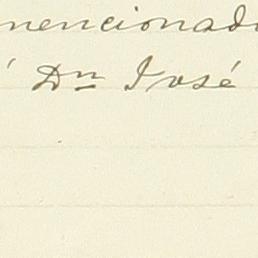 mencionad
Dn José